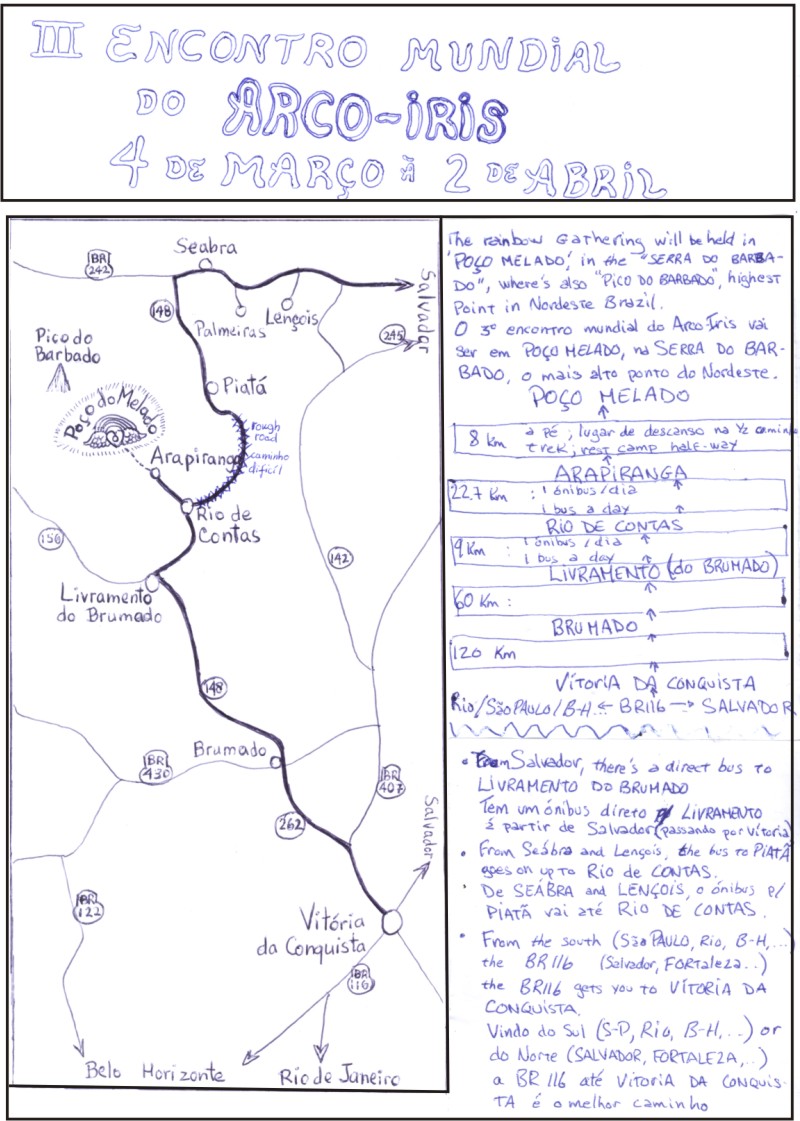 III ENCONTRO MUNDIAL
DO ARCO-IRIS
4 DE MARÇO À 2 DE ABRIL
BR 242
Seabra
Salvador
148
Palmeiras
Lençois
245
Pico do
Barbado
Piatá
Poço do Melado
rough
road
caminho
dificil
Arapiranga
Rio de
Contas
156
142
Livramento
do Brumado
148
Brumado
BR 430
BR 407
262
Salvador
BR 122
Vitória
da Conquista
BR 116
Belo Horizonte
Rio de Janeiro
The rainbow Gathering will be held in
"POÇO MELADO", in the "SERRA DO BARBA-
DO", where's also "PICO DO BARBADO", highest
Point in Nordeste Brazil.
O 3º encontro mundial do Arco Iris vai
ser em POÇO MELADO, na SERRA DO BAR-
BADO, o mais alto ponto do Nordeste.
POÇO MELADO
8 km a pé, lugar de descanso na ½ caminho
trek, rest camp half-way
ARAPIRANGA
22.7 Km : 1 ônibus/dia
1 bus a day
RIO DE CONTAS
9 Km : 1 ônibus/dia
1 bus a day
LIVRAMENTO (do BRUMADO)
60 Km :
BRUMADO
120 Km
VÍTORIA DA CONQUISTA
Rio/SãoPAULO/B-H... ← BR116 → SALVADOR
• From Salvador, there's a direct bus to
LIVRAMENTO DO BRUMADO
Tem um ónibus direto p/ LIVRAMENTO
é partir de Salvador (passando por Vitoria)
• From Seábra and Lençois, the bus to PIATÃ
goes on up to Rio de CONTAS.
• De SEÁBRA and LENÇOIS, o ónibus p/
PIATÃ vai até RIO DE CONTAS.
• From the south (São PAULO, Rio, B-H,...)
the BR116 (Salvador, FORTALEZA...)
the BR116 gets you to VÍTORIA DA
CONQUISTA.
Vindo do Sul (S-D, Rio, B-H,...) or
do Norte (SALVADOR, FORTALEZA,...)
a BR 116 até VITORIA DA CONQUIS-
TA é o melhor caminho